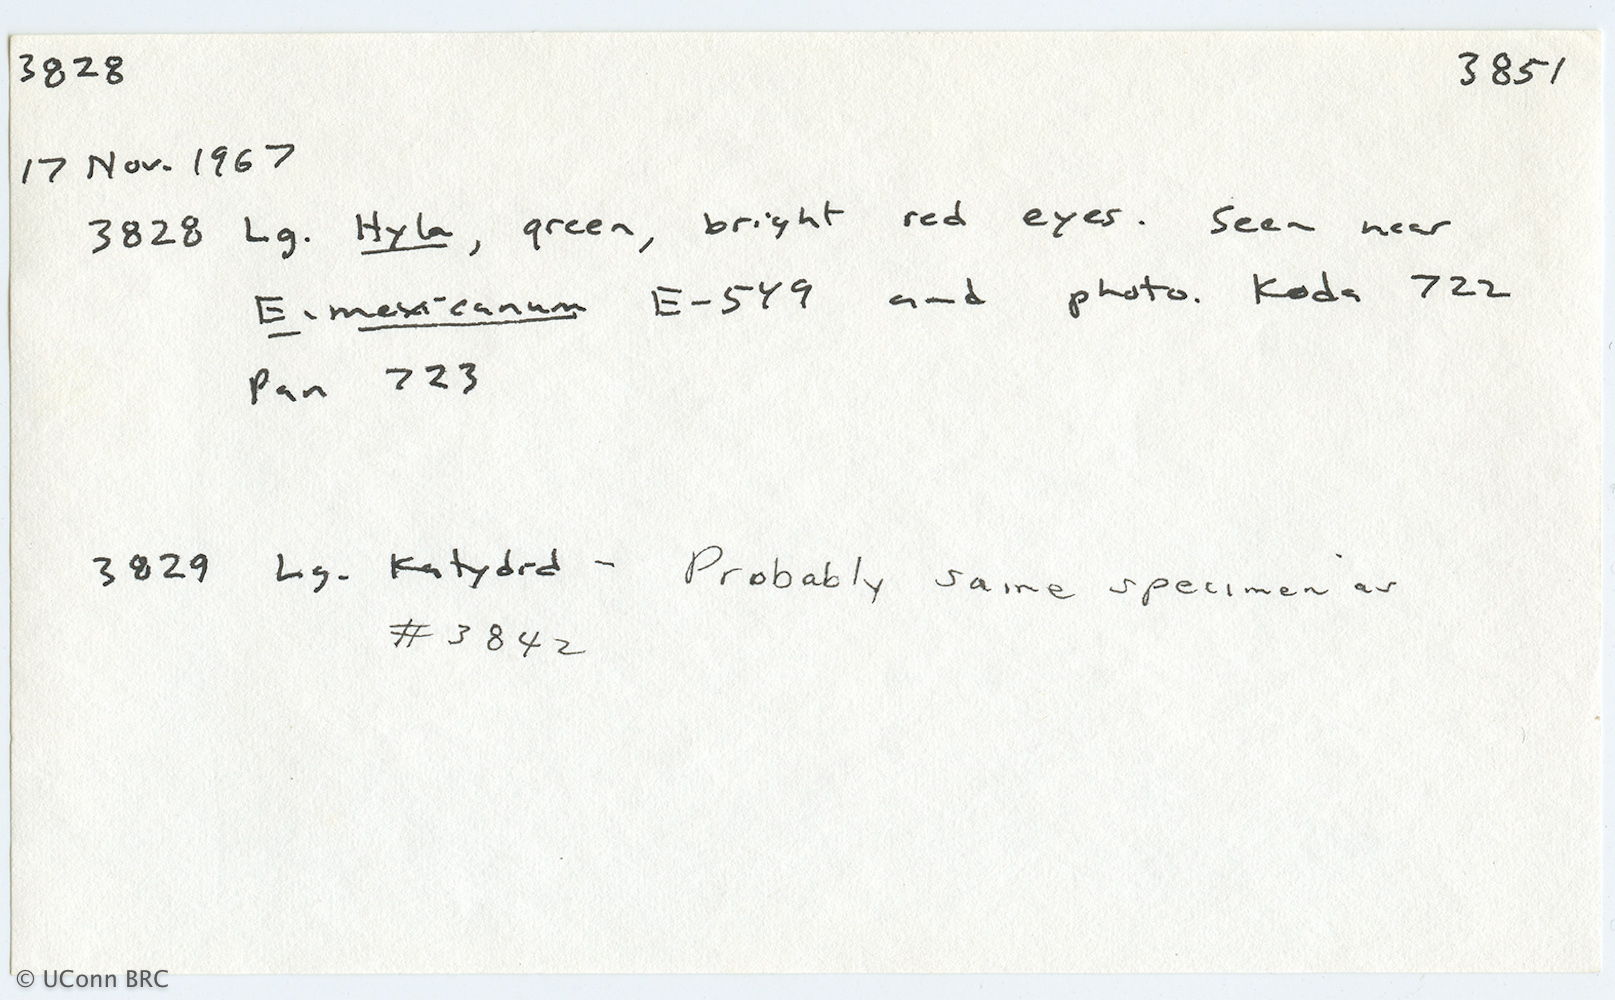 3828 3851
17 Nov. 1967
3828 Lg. Hyla, green, bright red eyes. Seen near
E. mexicanum E-549 and photo. Koda 722
Pan 723
3829 Lg. Katydid - Probably same specimen as
#3842
© UConn BRC